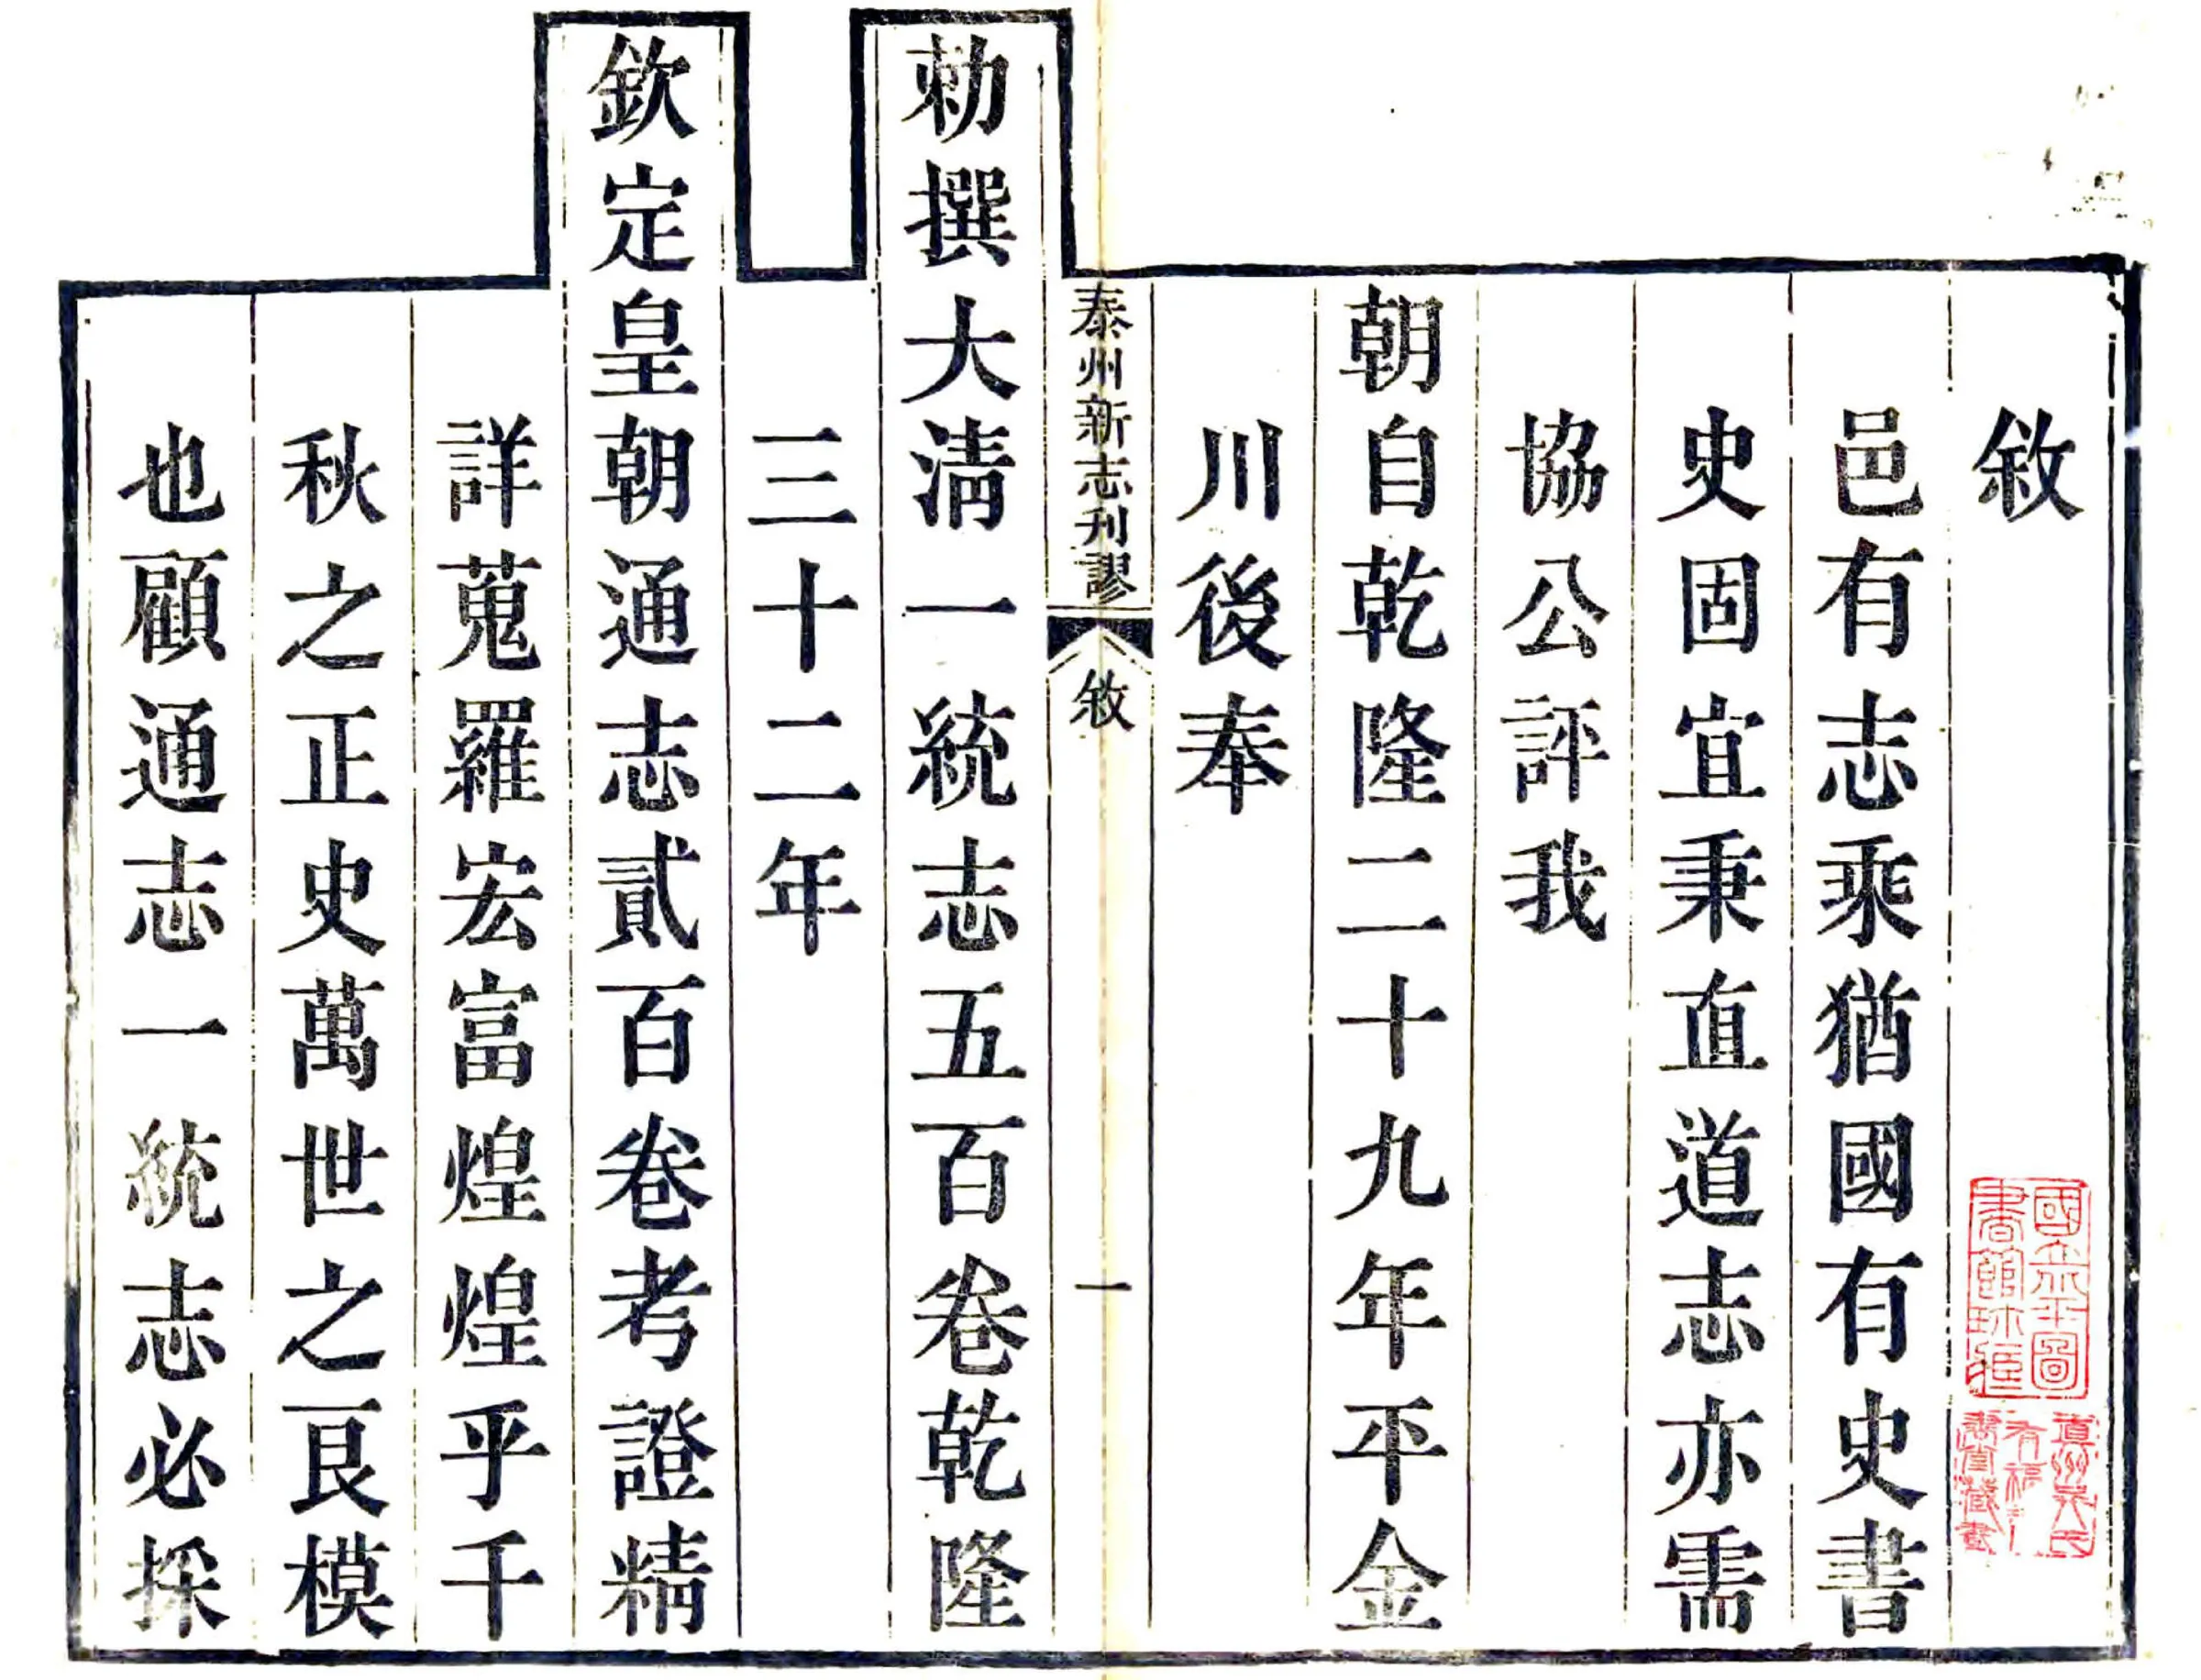 敘
邑有志乘猶國有史書
史固宜秉直道志亦需
協公評我
朝自乾隆二十九年平金
川後奉
泰州新志刊謬
敘
一
勅撰大清一統志五百卷乾隆
三十二年
欽定皇朝通志貳百卷考證精
詳蒐羅宏富煌煌乎千
秋之正史萬世之良模
也顧通志一統志必採
國立北平圖
書館珍藏
真州吳氏
有福讀
書堂藏書